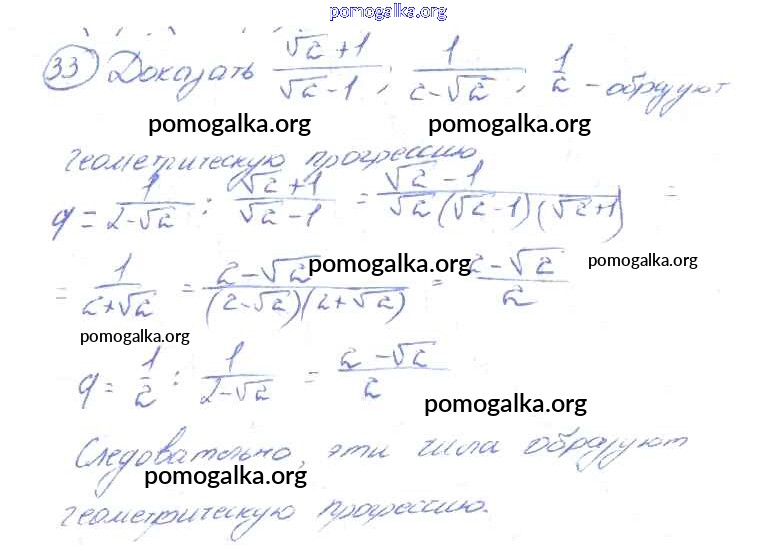 pomogalka.org
33 Доказать (√2+1)/(√2-1); 1/(2-√2); 1/2 - образуют
pomogalka.org pomogalka.org
геометрическую прогрессию
q = 1/(2-√2) : (√2+1)/(√2-1) = (√2-1)/(√2(√2-1)(√2+1)) =
= 1/(2+√2) = (2-√2)/((2-√2)(2+√2)) = (2-√2)/2
pomogalka.org pomogalka.org
pomogalka.org
q = 1/2 : 1/(2-√2) = (2-√2)/2
pomogalka.org
Следовательно, эти числа образуют
pomogalka.org
геометрическую прогрессию.